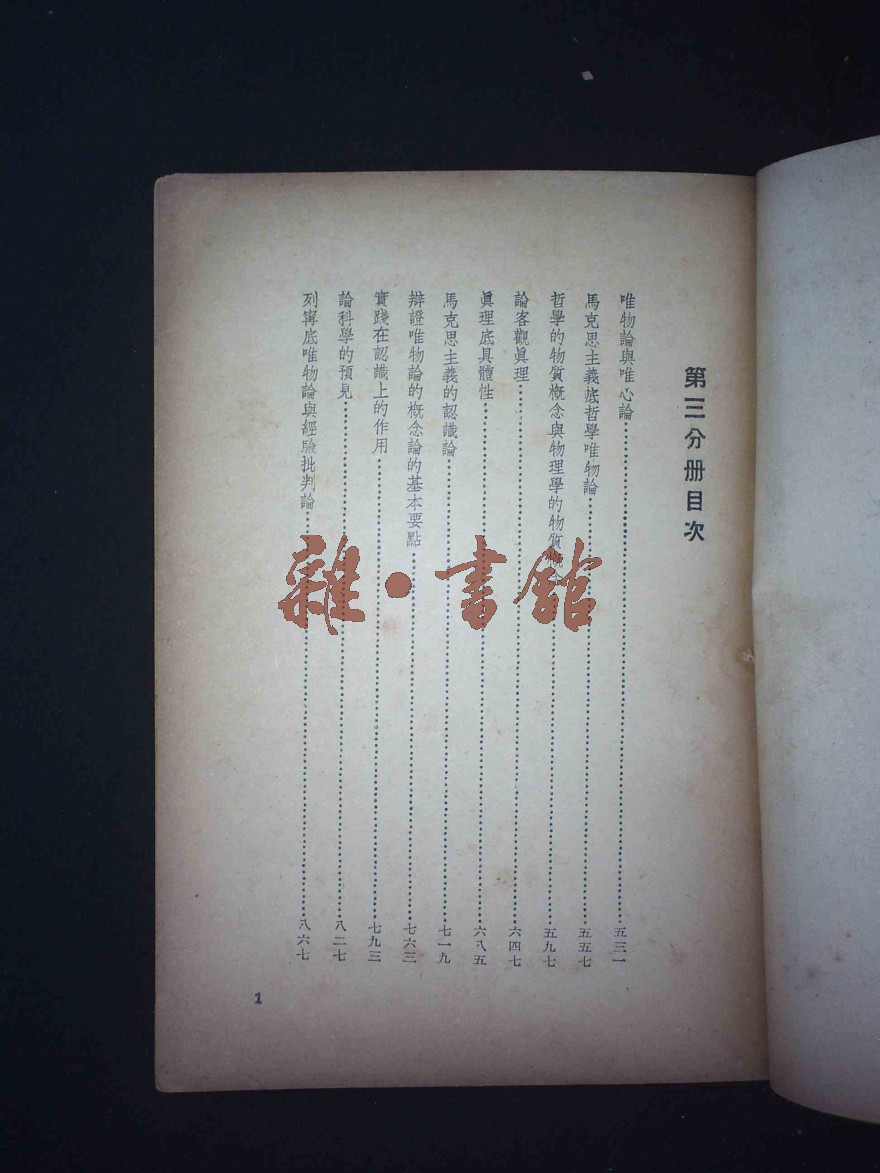 第三分册目次
唯物論與唯心論……五三一
馬克思主義底哲學唯物論……五五七
哲學的物質概念與物理學的物質概念……五九七
論客觀眞理……六四七
眞理底具體性……六八五
馬克思主義的認識論……七一九
辯證唯物論的概念論的基本要點……七六三
實踐在認識上的作用……七九三
論科學的預見……八二七
列寧底唯物論與經驗批判論……八六七
1
雜·書館